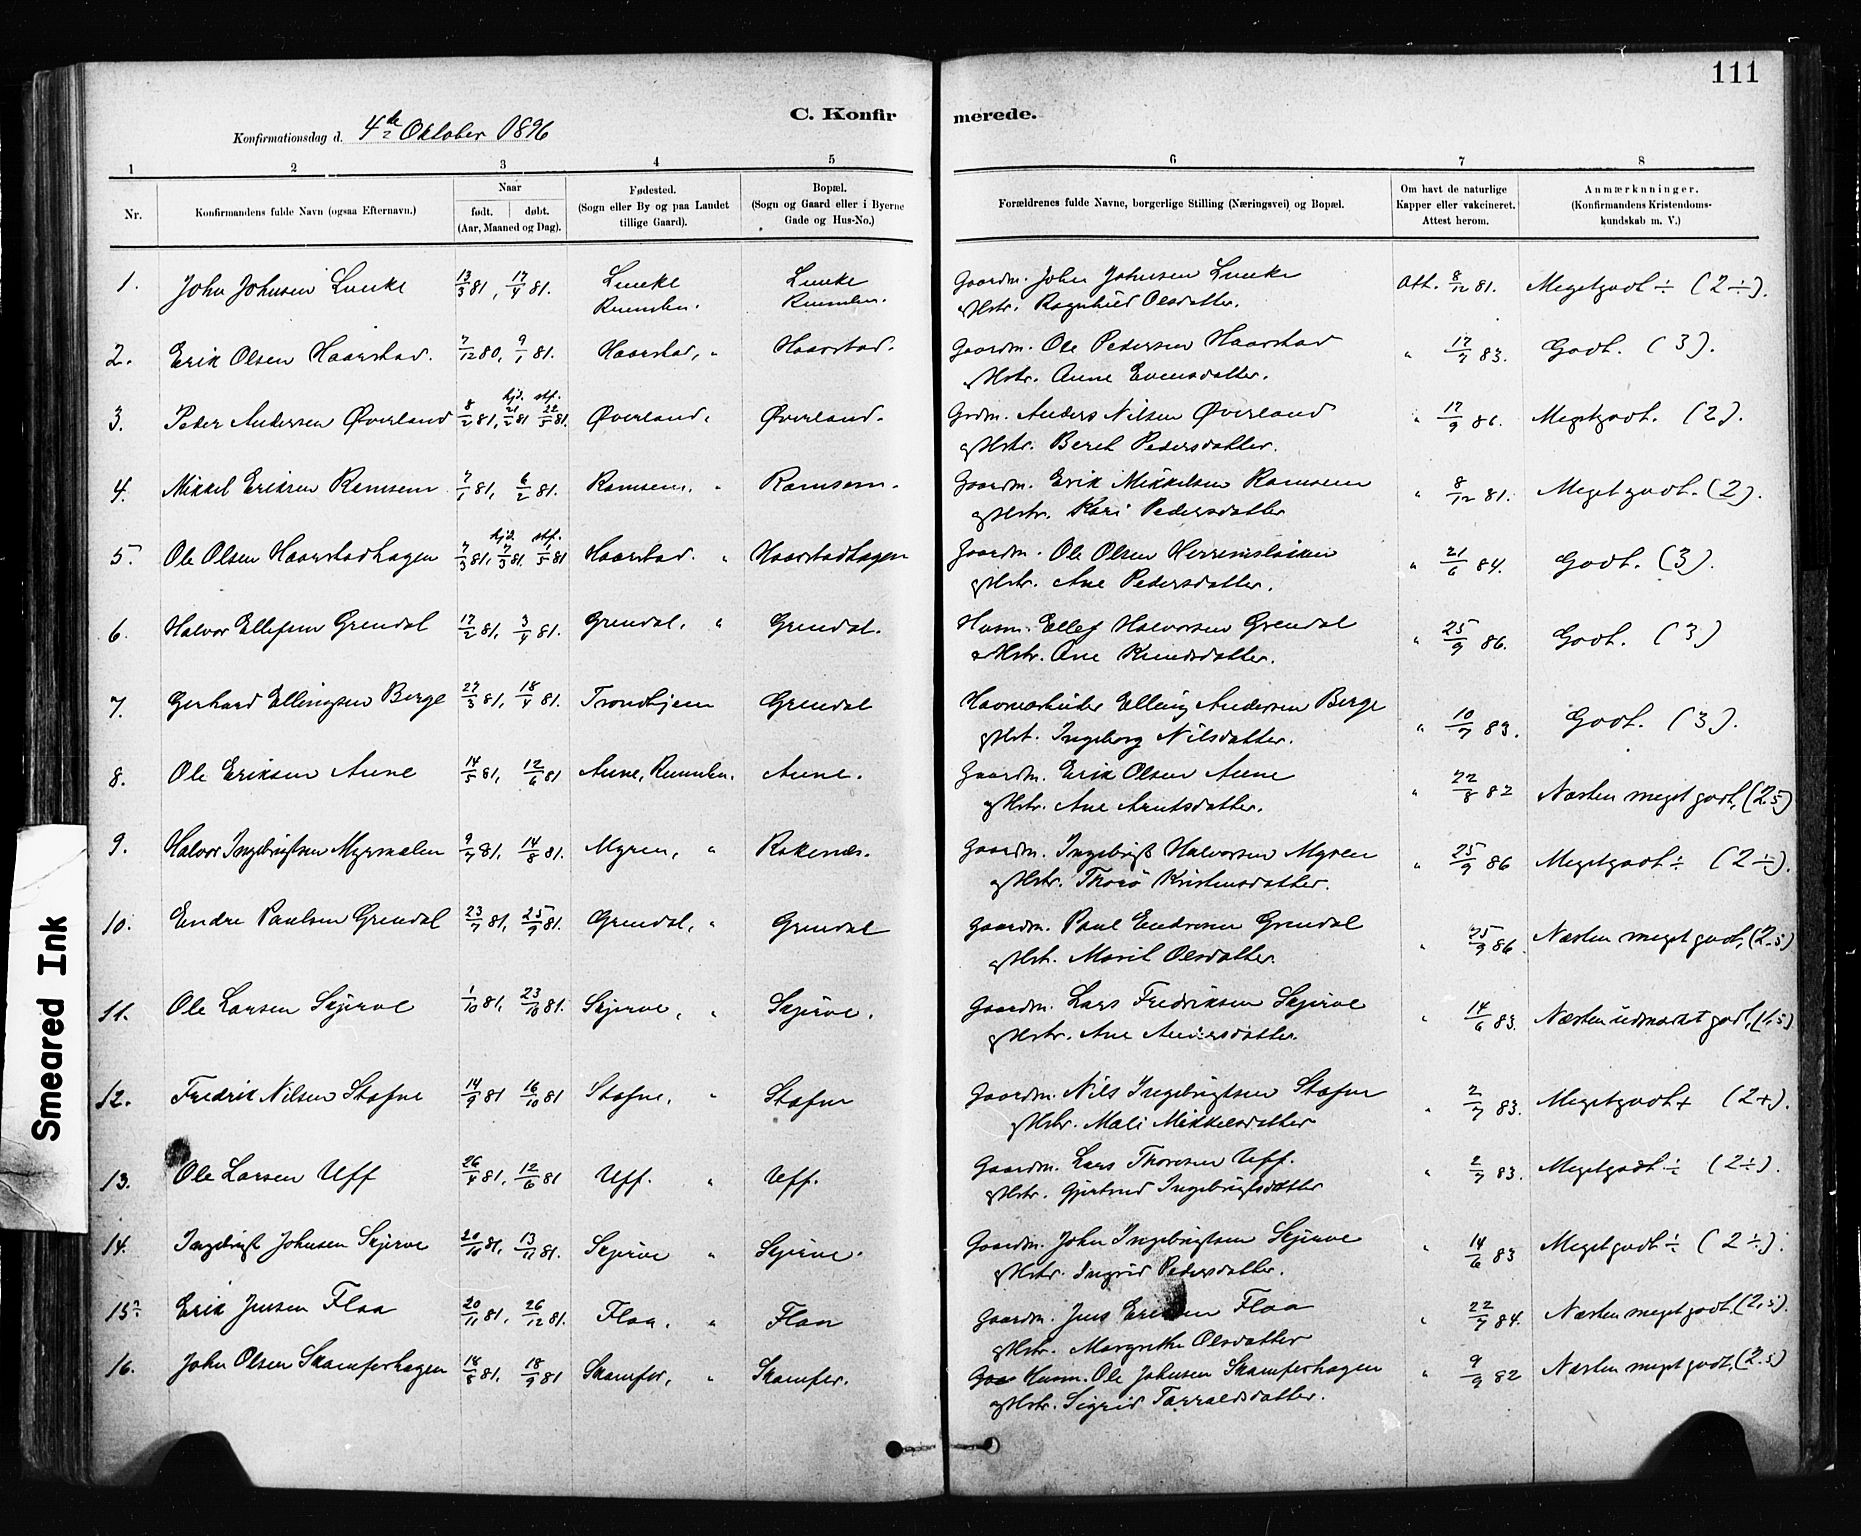 111
C. Konfirmerede.
Konfirmationsdag d. 4de Oktober 1896
1 2 3 4 5 6 7 8
Nr. | Konfirmandens fulde Navn (ogsaa Efternavn.) | Naar født. | døbt. (Aar, Maaned og Dag). | Fødested. (Sogn eller By og paa Landet tillige Gaard). | Bopæl. (Sogn og Gaard eller i Byerne Gade og Hus-No.) | Forældrenes fulde Navne, borgerlige Stilling (Næringsvei) og Bopæl. | Om havt de naturlige Kapper eller vakcineret. Attest herom. | Anmærkninger. (Konfirmandens Kristendomskundskab m. V.)
1. John Johnsen Lunke 13/3 81, 17/4 81. Lunke Lunke Gaardm. John Johnsen Lunke Att. 8/12 81. Megetgodt ÷ (2 ÷).
Rennebu. Rennebu. og Hstr. Ragnhild Olsdatter.
2. Erik Olsen Haarstad. 7/12 80, 9/1 81. Haarstad, " Haarstad. Gaardm. Ole Pedersen Haarstad " 17/7 83. Godt. (3).
og Hstr. Anne Evensdatter.
hjd. stf.
3. Peder Andersen Øverland 8/2 81, 21/2 81 22/5 81. Øverland. Øverland. Grdm. Anders Nilsen Øverland " 17/9 86. Megetgodt. (2).
og Hstr. Beret Pedersdatter.
4. Mikkel Eriksen Ramsem 7/1 81, 6/2 81. Ramsem. " Ramsem. Gaardm. Erik Mikkelsen Ramsem " 8/12 81. Meget godt. (2).
og Hstr. Kari Pedersdatter
hjd. stf.
5. Ole Olsen Haarstadhagen 7/3 81, 7/3 81. 1/5 81 Haarstad. " Haarstadhagen Gaardm. Ole Olsen " 21/6 84. Godt. (3).
og Hstr. Ane Pedersdatter.
6. Halvor Ellefsen Grendal 17/2 81, 3/4 81. Grendal, " Grendal. Husm. Ellef Halvorsen Grendal " 25/9 86. Godt. (3)
og Hstr. Ane Knudsdatter.
7. Gerhard Ellingsen Berge 27/3 81, 18/4 81. Trondhjem Grendal Havnearbeider Elling Andersen Berge " 10/7 83. Godt. (3).
og Hst. Ingeborg Nilsdatter.
8. Ole Eriksen Aune 14/5 81, 12/6 81 Aune, Rennebu. Aune. Gaardm. Erik Olsen Aune " 22/8 82 Næsten meget godt, (2.5)
og Hstr. Ane Arntsdatter.
9. Halvor Ingebrigtsen Myrmælen 9/7 81, 14/8 81. Myren, " Rokenes. Gaardm. Ingebrigt Halvorsen Myren " 25/9 86 Megetgodt ÷ (2 ÷).
og Hstr. Thorø Kristensdatter.
10. Endre Paulsen Grendal 23/7 81, 25/9 81. Grendal, " Grendal Gaardm. Paul Endresen Grendal " 25/9 86. Næsten meget godt, (2.5)
og Hst. Marit Olsdatter.
11. Ole Larsen Skjerve 1/10 81, 23/10 81. Skjerve, " Skjerve. Gaardm. Lars Fredriksen Skjerve " 14/6 83. Næsten udmærket godt, (1,5)
og Hstr. Ane Andersdatter.
12. Fredrik Nilsen Stafne 14/9 81 16/10 81 Stafne, " Stafne Gaardm. Nils Ingebrigtsen Stafne " 2/7 83. Megetgodt + (2+).
og Hstr. Mali Mikkelsdatter
13. Ole Larsen Uff 26/4 81, 12/6 81 Uff. " Uff. Gaardm. Lars Thoresen Uff. " 2/7 83. Megetgodt ÷ (2÷).
og Hstr. Gjertrud Ingebrigtsdatter
14. Ingebrigt Johnsen Skjerve 20/10 81, 13/11 81. Skjerve " Skjerve. Gaardm. John Ingebrigtsen Skjerve " 14/6 83 Megetgodt ÷ (2 ÷).
og Hstr. Ingrid Pedersdatter.
15. Erik Jensen Flaa 20/11 81, 26/12 81. Flaa. " Flaa Gaardm. Jens Eriksen Flaa " 22/7 84. Næsten meget godt, (2,5).
og Hstr. Margrethe Olsdatter
16. John Olsen Skamferhagen 18/8 81. 18/9 81 Skamfer, " Skamfer. Husm. Ole Johnsen Skamferhagen " 9/9 82 Næsten meget godt, (2.5)
og Hstr. Sigrid Tarraldsdatter.
Smeared Ink